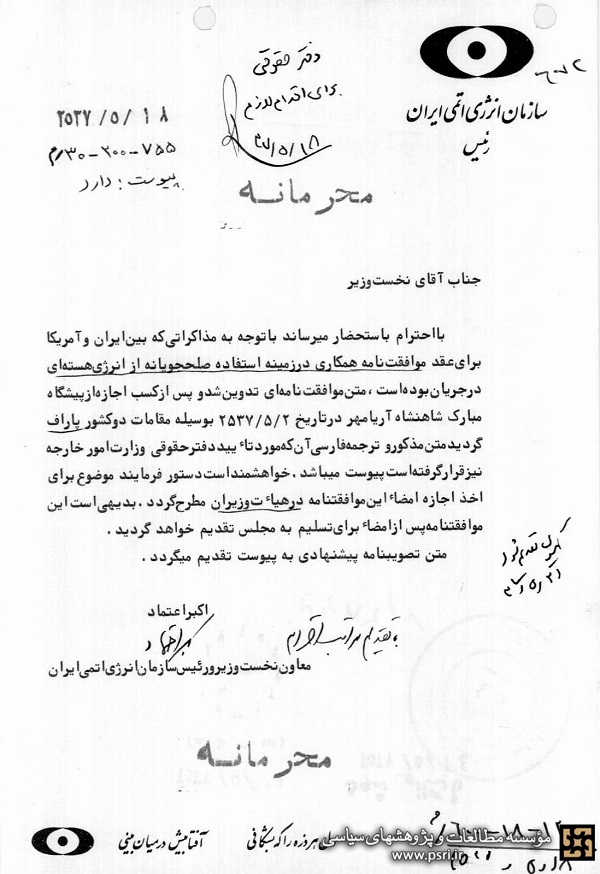 سازمان انرژی اتمی ایران
رئیس
۶۰۷۲
دفتر حقوقی
برای اقدام لازم
۳۷/۵/۱۸
۲۵۳۷/۵/۱۸
۳۰-۲۰۰-۷۵۵م
پیوست: دارد
محرمانه
جناب آقای نخست‌وزیر
بااحترام باستحضار میرساند باتوجه به مذاکراتی‌که بین‌ایران وآمریکا
برای‌عقد موافقت‌نامه همکاری درزمینه استفاده صلحجویانه از انرژی‌هسته‌ای
درجریان بوده‌است، متن‌موافقت‌نامه‌ای تدوین‌شدو پس‌ازکسب اجازه‌ازپیشگاه
مبارک شاهنشاه آریامهر درتاریخ ۲۵۳۷/۵/۲ بوسیله مقامات دوکشور پاراف
گردید‌متن‌مذکورو ترجمه‌فارسی‌آن‌که‌موردتائید‌دفترحقوقی وزارت‌امور خارجه
نیزقرارگرفته‌است‌پیوست میباشد.خواهشمنداست‌دستور فرمایند موضوع برای
اخذ اجازه امضاء این‌موافقتنامه درهیاءت‌وزیران مطرح‌گردد. بدیهی‌است این
موافقتنامه‌پس ازامضاء برای‌تسلیم به مجلس تقدیم خواهد گردید.
متن تصویبنامه پیشنهادی به پیوست تقدیم میگردد.
اکبراعتماد
با تقدیم مراتب احترام
معاون‌نخست‌وزیرو‌رئیس‌سازمان‌انرژی‌اتمی‌ایران
محرمانه
دل هر ذره را که بشکافی
آفتابیش در میان بینی
موسسه مطالعات و پژوهشهای سیاسی
www.psri.ir